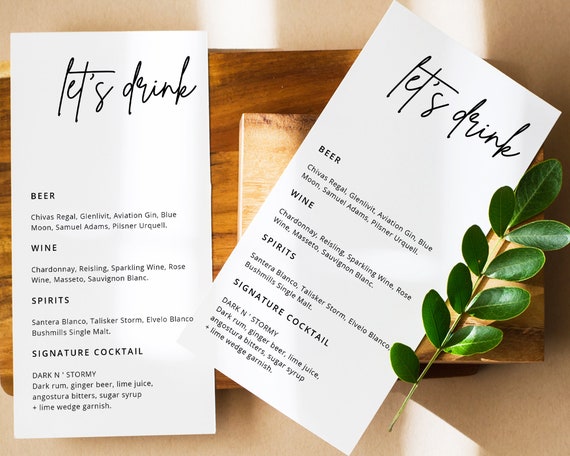 let's drink
BEER
Chivas Regal, Glenlivit, Aviation Gin, Blue
Moon, Samuel Adams, Pilsner Urquell.
WINE
Chardonnay, Reisling, Sparkling Wine, Rose
Wine, Masseto, Sauvignon Blanc.
SPIRITS
Santera Blanco, Talisker Storm, Elvelo Blanco
Bushmills Single Malt.
SIGNATURE COCKTAIL
DARK N ' STORMY
Dark rum, ginger beer, lime juice,
angostura bitters, sugar syrup
+ lime wedge garnish.
let's drink
BEER
Chivas Regal, Glenlivit, Aviation Gin, Blue
Moon, Samuel Adams, Pilsner Urquell.
WINE
Chardonnay, Reisling, Sparkling Wine, Rose
Wine, Masseto, Sauvignon Blanc.
SPIRITS
Santera Blanco, Talisker Storm, Elvelo Blanco,
Bushmills Single Malt.
SIGNATURE COCKTAIL
DARK N ' STORMY
Dark rum, ginger beer, lime juice,
angostura bitters, sugar syrup
+ lime wedge garnish.